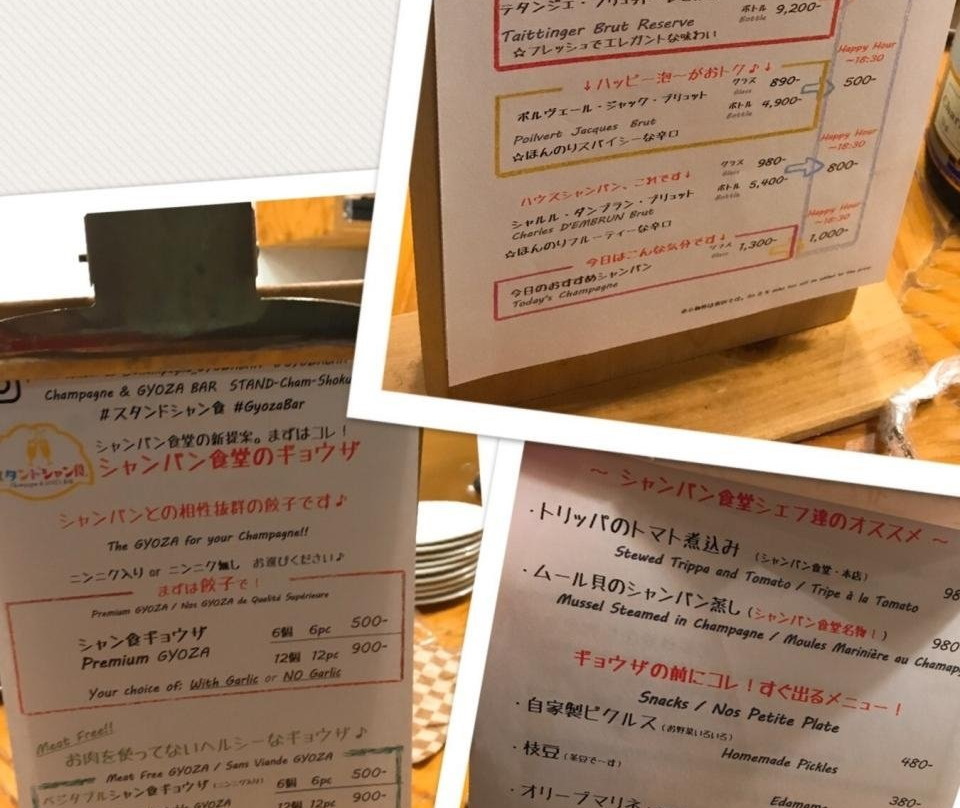 テタンジェ・ブリュット
ボトル 9,200-
Bottle
Taittinger Brut Reserve
☆フレッシュでエレガントな味わい
↓ハッピー泡〜がおトク♪↓
Happy Hour
~18:30
ポルヴェール・ジャック・ブリュット
グラス 890-
Glass
500-
ボトル 4,900-
Bottle
Poilvert Jacques Brut
☆ほんのりスパイシーな辛口
Happy Hour
~18:30
ハウスシャンパン、これです↓
グラス 980-
Glass
800-
シャルル・ダンブラン・ブリュット
ボトル 5,400-
Bottle
Charles D'EMBRUN Brut
☆ほんのりフルーティーな辛口
Happy Hour
~18:30
今日はこんな気分です↓
グラス 1,300-
Glass
1,000-
今日のおすすめシャンパン
Today's Champagne
Champagne & GYOZA BAR STAND-Cham-Shoku
#スタンドシャン食 #GyozaBar
シャンパン食堂の新提案。まずはコレ!
シャンパン食堂のギョウザ
タンドシャン食
シャンパンとの相性抜群の餃子です♪
The GYOZA for your Champagne!!
ニンニク入り or ニンニク無し お選びください♪
まずは餃子で!
Premium GYOZA / Nos GYOZA de Qualité Supérieure
シャン食ギョウザ 6個 6pc 500-
Premium GYOZA 12個 12pc 900-
Your choice of: With Garlic or NO Garlic
Meat Free!!
お肉を使ってないヘルシーなギョウザ♪
Meat Free GYOZA / Sans Viande GYOZA
ベジタブルシャン食ギョウザ 6個 6pc 500-
GYOZA 12個 12pc 900-
〜シャンパン食堂シェフ達のオススメ〜
・トリッパのトマト煮込み (シャンパン食堂・本店)
Stewed Trippa and Tomato / Tripe à la Tomato
98
・ムール貝のシャンパン蒸し(シャンパン食堂名物!)
980
Mussel Steamed in Champagne / Moules Marinière au Champag
ギョウザの前にコレ!すぐ出るメニュー!
Snacks / Nos Petite Plate
・自家製ピクルス(お野菜いろいろ)
Homemade Pickles 480-
・枝豆(茶豆でーす)
Edamame 380-
・オリーブマリネ